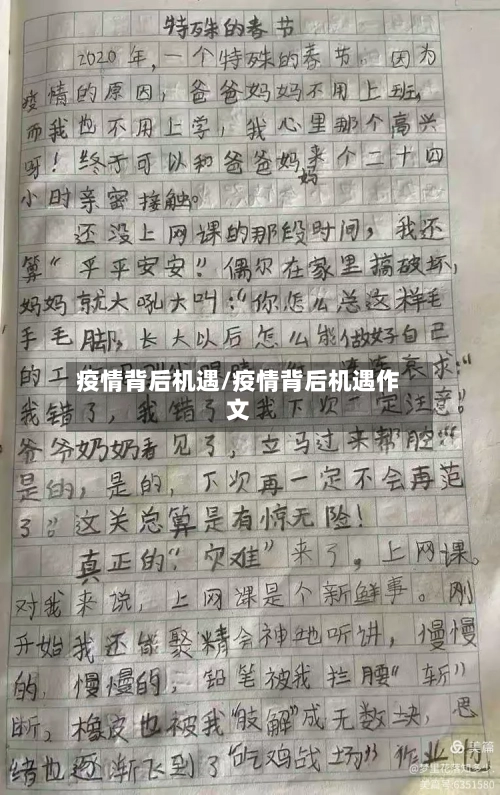 特殊的春节
2020年,一个特殊的春节。因为
疫情的原因,爸爸妈妈不用上班,
而我也不用上学,我心里那个高兴
呀!终于可以和爸爸妈妈来个二十四
小时亲密接触。
还没上网课的那段时间,我还
算“平平安安”!偶尔在家里搞破坏,
妈妈就大吼大叫:“你怎么总这样毛
手毛脚,长大以后怎么能做好自己
的工
哀求:“
疫情背后机遇/疫情背后机遇作
文
我错了,我错了我下次一定注意。”
爷爷奶奶看见了,立马过来帮腔:“
是的,是的,下次再一定不会再范
了。”这关总算是有惊无险!
真正的“灾难”来了,上网课。
对我来说,上网课是个新鲜事。刚
开始我还能聚精会神地听讲,慢慢
的,慢慢的,铅笔被我拦腰“斩”
断,橡皮也被我“肢解”成无数块,思
绪也逐渐飞到了“吃鸡战场”作业
美篇
@梦里花落知多少
美篇号:6351580